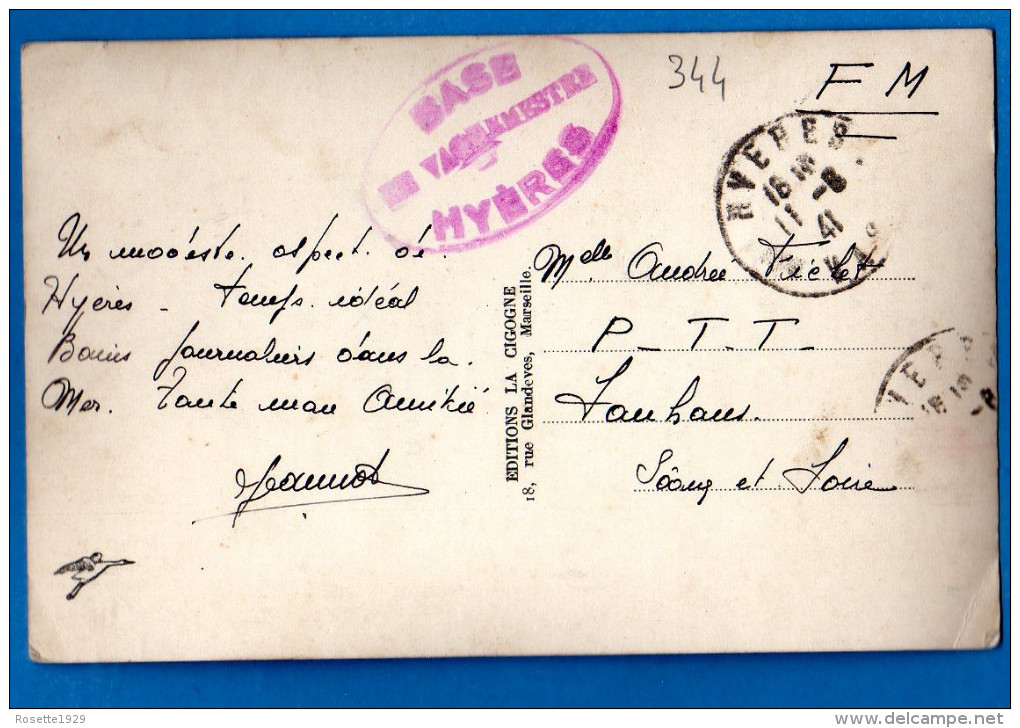 344
F M
BASE
LE VAGUEMESTRE
HYÈRES
HYERES
16 H
11 -8
41
VAR
Un modeste aspect de
Hyères - Temps idéal
Bains journaliers dans la
Mer. Toute mon Amitié
Jeannot
EDITIONS LA CIGOGNE
18, rue Glandeves, Marseille.
Melle Andrée Fichet
P_ T_ T_
Louhans.
Saône et Loire
Rosette1929
delcampe.net